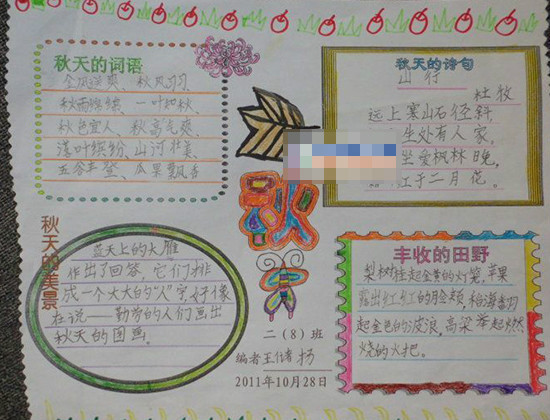 秋天的词语
金风送爽、秋风习习、
秋雨绵绵、一叶知秋、
秋色宜人、秋高气爽、
落叶缤纷、山河壮美、
五谷丰登、瓜果飘香
秋天的诗句
山行
杜牧
远上寒山石径斜,
生处有人家,
坐爱枫林晚,
红于二月花。
秋
秋天的美景
蓝天上的大雁
作出了回答,它们排
成一个大大的“人”字,好像
在说——勤劳的人们画出
秋天的图画。
丰收的田野
梨树挂起金黄的灯笼,苹果
露出红红的脸颊,稻海翻
起金色的波浪,高粱举起燃
烧的火把。
二(8)班
编者王
2011年10月28日